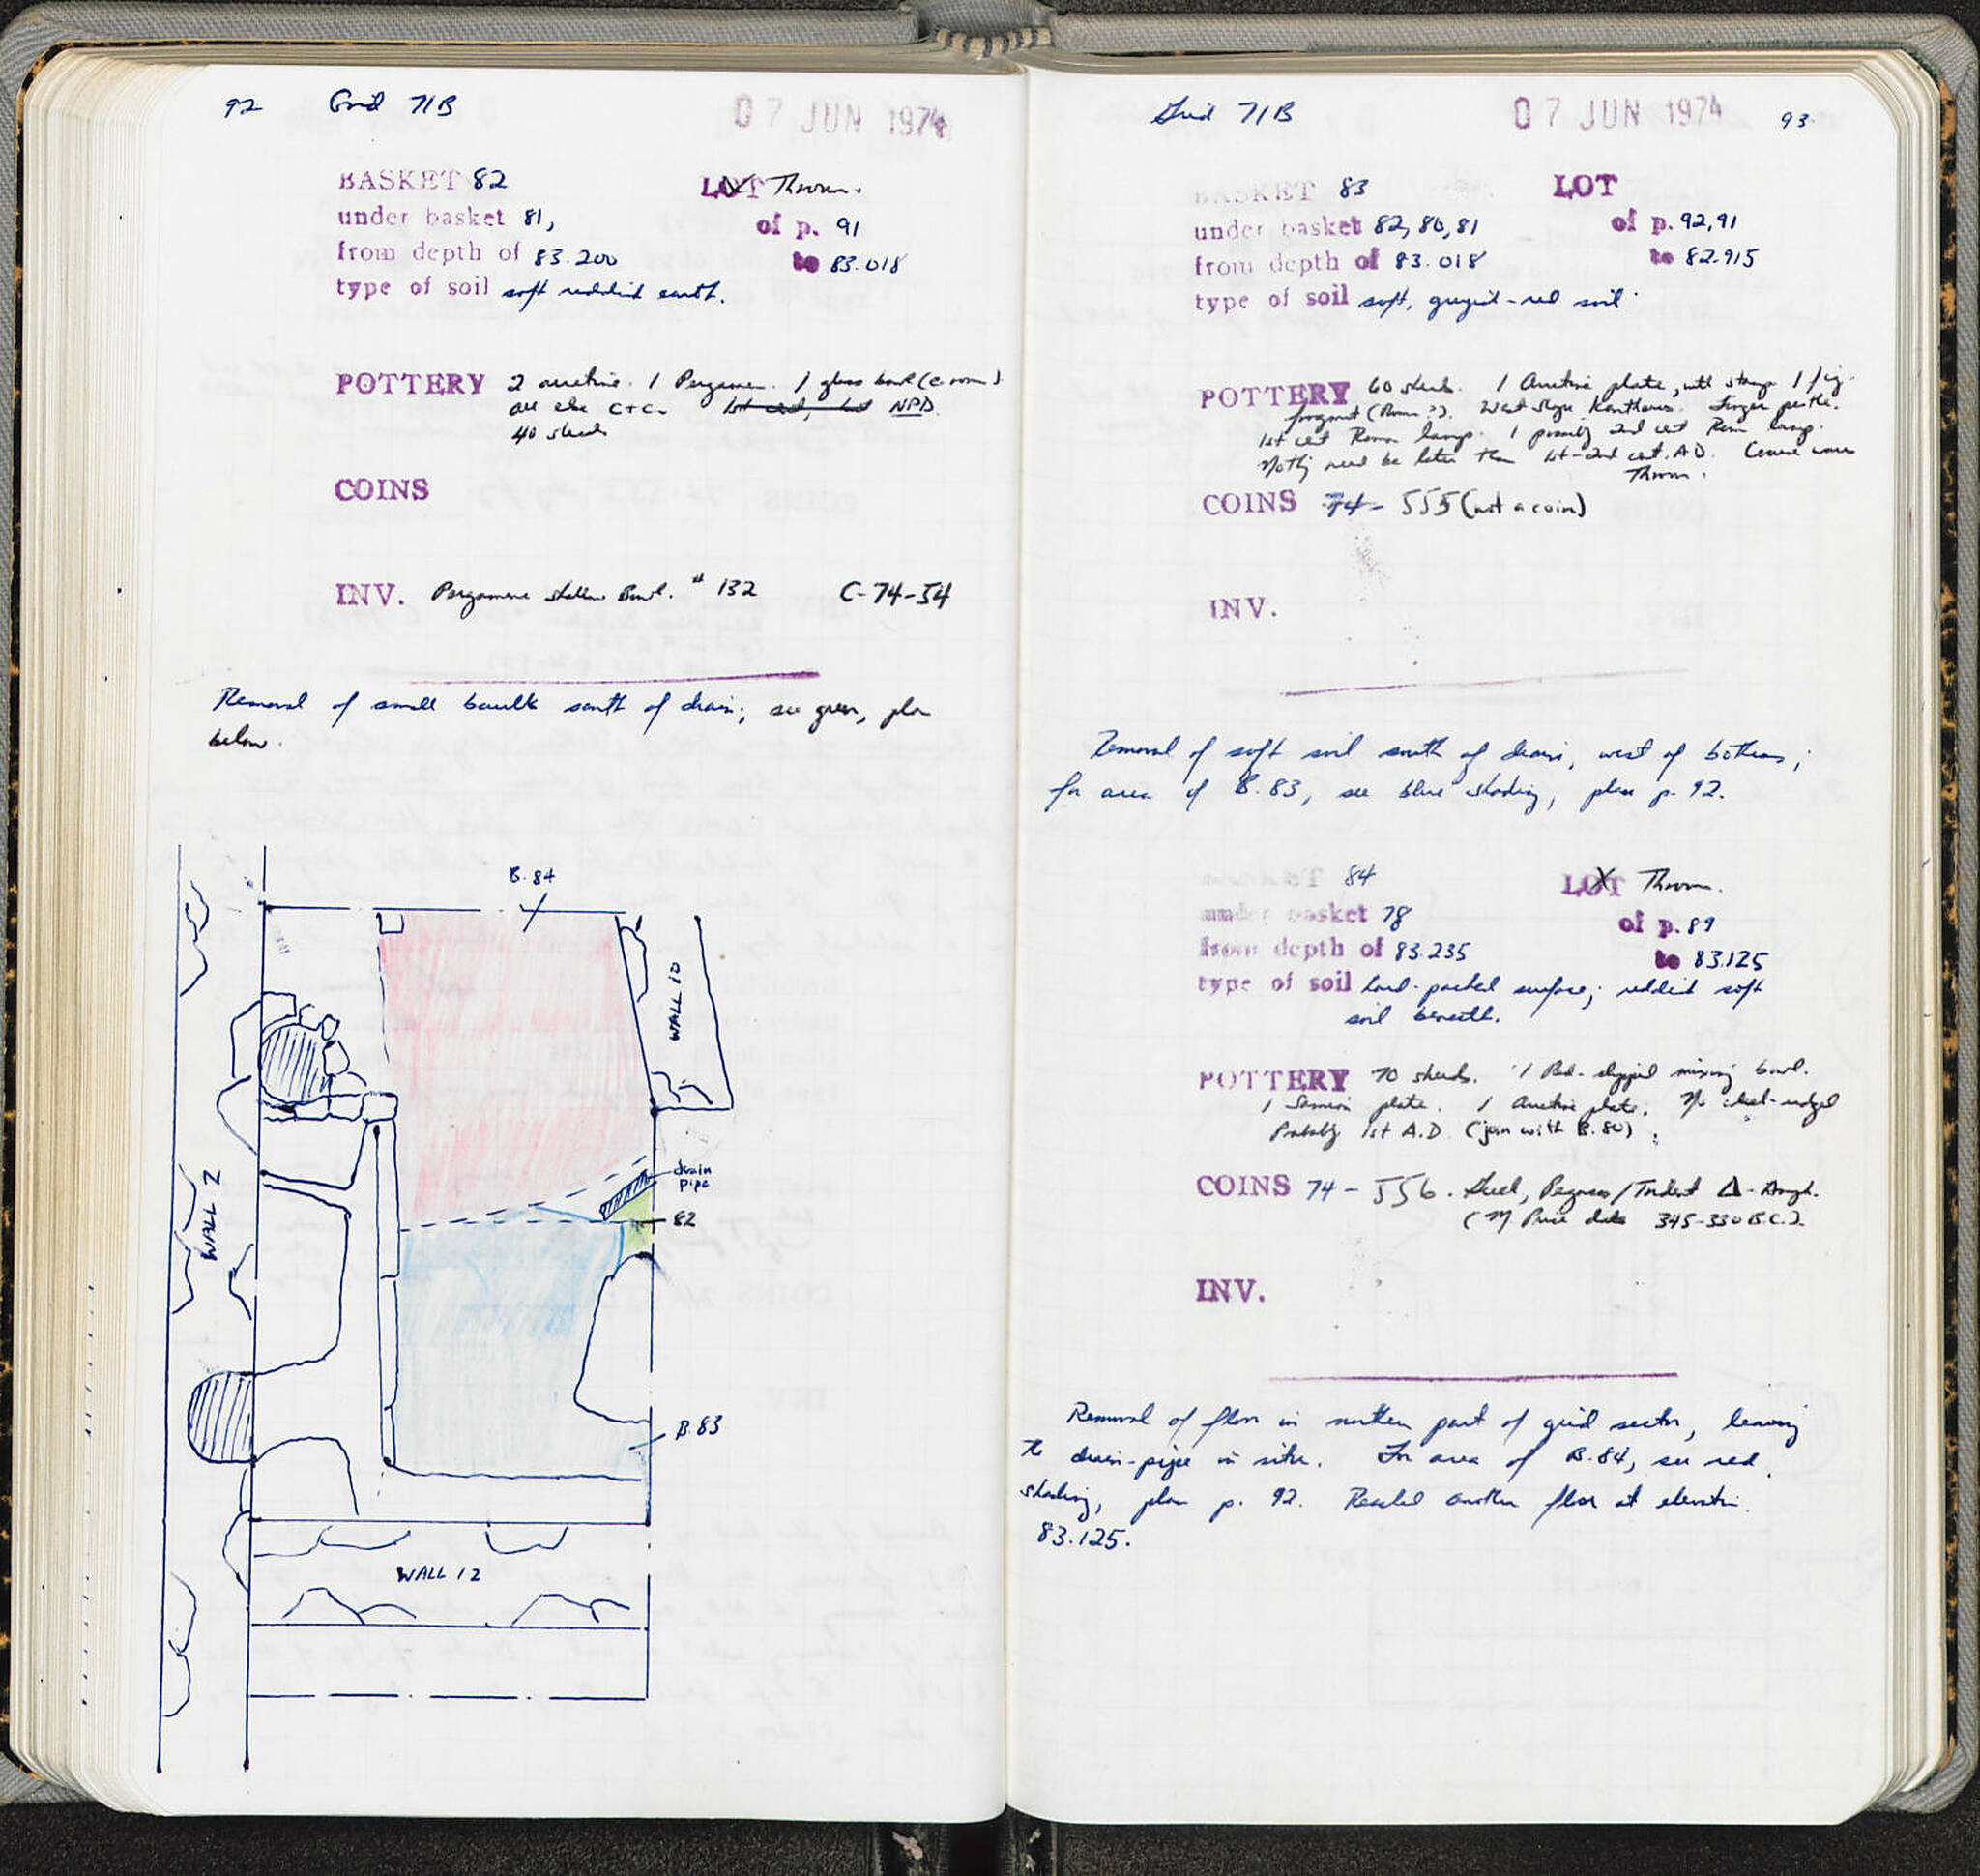 92 Grid 71B 07 JUN 1974
BASKET 82 LOT Thrown.
under basket 81, of p. 91
from depth of 83.200 to 83.018
type of soil soft reddish earth.
POTTERY 2 arretine. 1 Pergamene. 1 glass bowl (c room).
all else C+C. NPD.
40 sherds
COINS
INV. Pergamene shallow Bowl. # 132 C-74-54
Removal of small baulk south of drain; see green, plan
below.
B. 84
WALL 10
WALL 2
drain
pipe
82
B. 83
WALL 12
Grid 71B 07 JUN 1974 93
BASKET 83 LOT
under basket 82, 80, 81 of p. 92, 91
from depth of 83.018 to 82.915
type of soil soft, greyish-red soil.
POTTERY 60 sherds. 1 Arretine plate, with stamp 1 fig.
fragment (Roman?). West slope Kantharos. Finger pestle.
1st cent Roman lamp. 1 possibly 2nd cent Rom lamp.
Nothing need be later than 1st-2nd cent. A.D. Coarse wares
Thrown.
COINS 74-555 (not a coin)
INV.
Removal of soft soil south of drain, west of bothros;
for area of B. 83, see blue shading, plan p. 92.
84 LOT Thrown.
under basket 78 of p. 89
from depth of 83.235 to 83.125
type of soil hard-packed surface; reddish soft
soil beneath.
POTTERY 70 sherds. 1 Red-slipped mixing bowl.
1 Samian plate. 1 Arretine plate. No wheel-ridged
Probably 1st A.D. (join with B. 80).
COINS 74-556. Sicel, Pegasus/Trident Δ-
(M. Price date 345-330 B.C.)
INV.
Removal of floor in northern part of grid sector, leaving
the drain-pipe in situ. For area of B. 84, see red
shading, plan p. 92. Reached another floor at elevation
83.125.